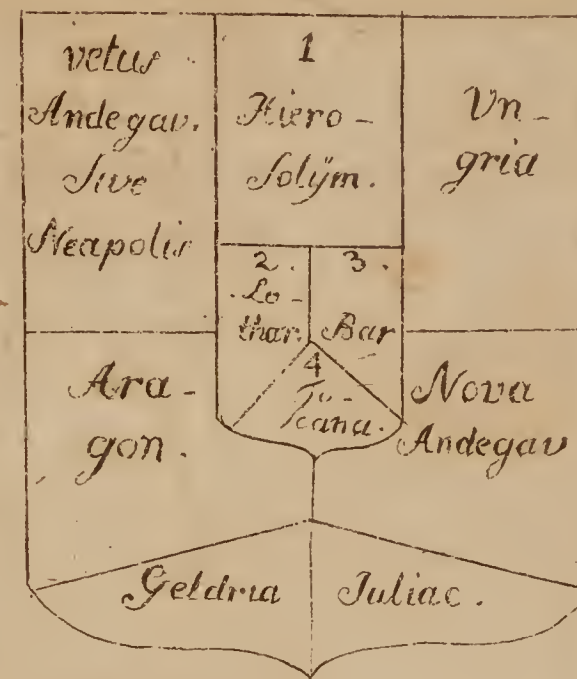 vetus
Andegav.
sive
Neapolis
1
Hiero-
solÿm.
Vn-
gria
2.
Lo-
thar.
3.
Bar
Ara-
gon.
4
Tu-
scana.
Nova
Andegav
Geldria
Iuliac.